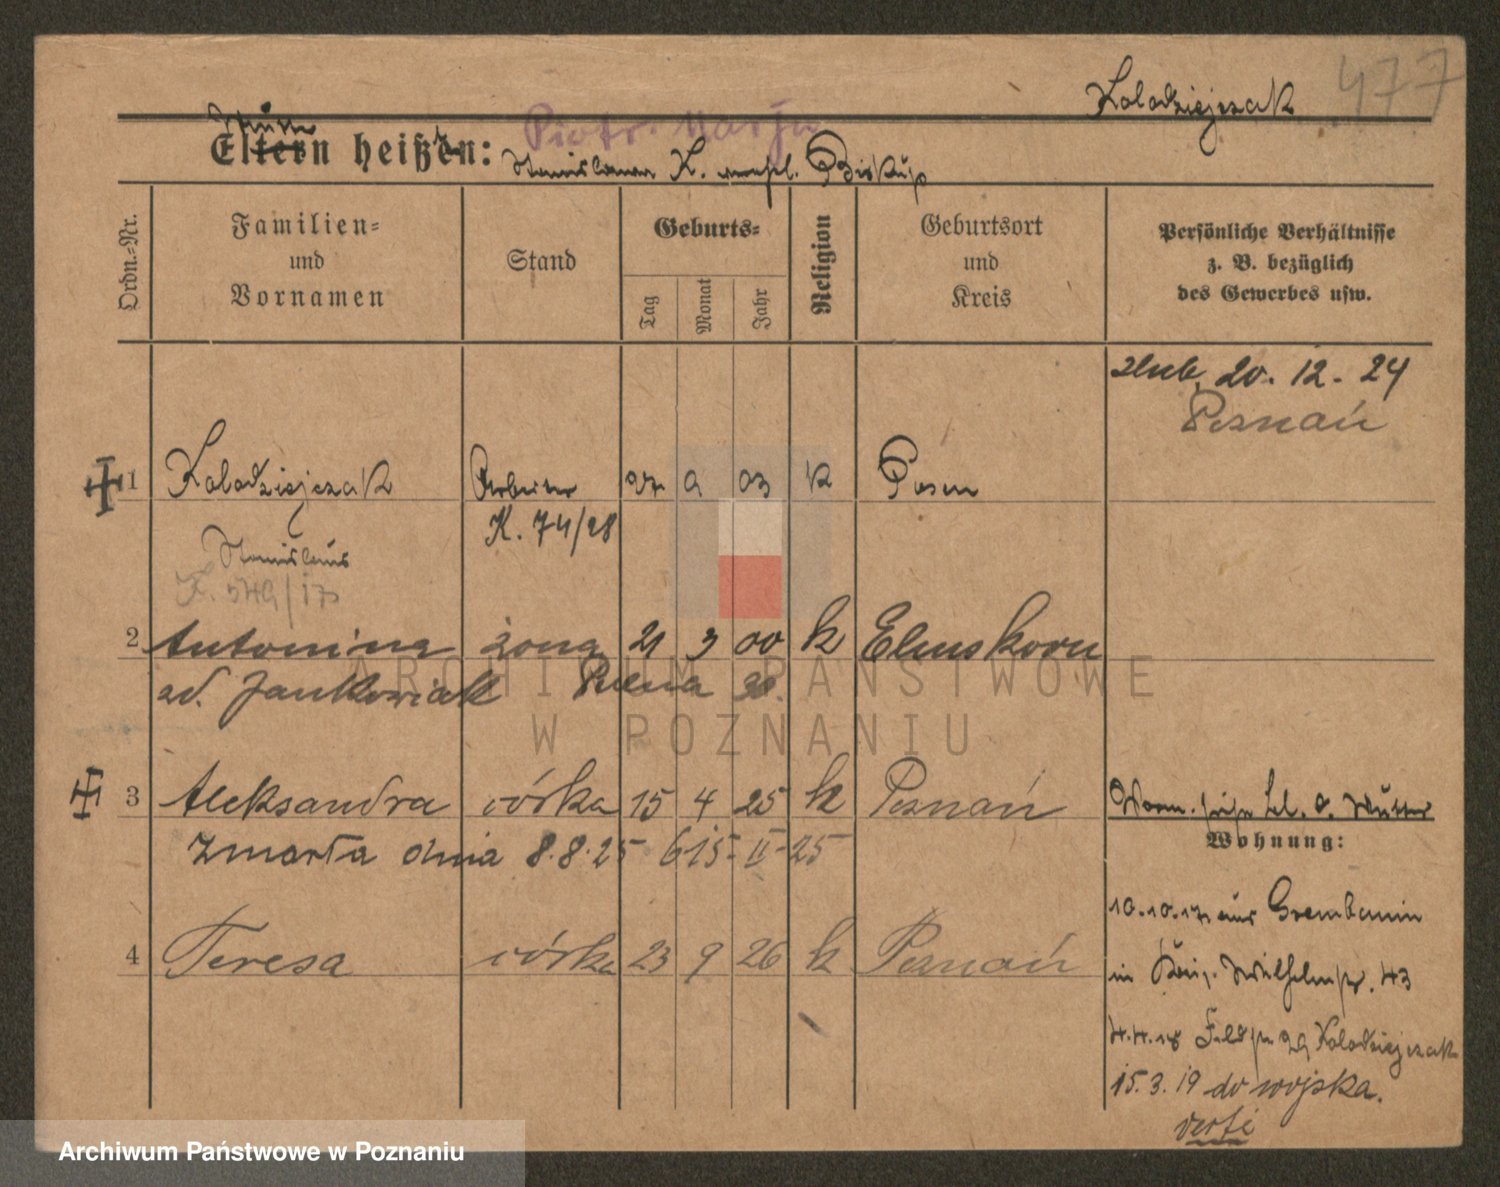 Kolodziejczak 477
Eltern heißen: Piotr
Stanislawa K. verehl. Biskup
Ordn.-Nr.
Familien-
und
Vornamen
Stand
Geburts-
Tag
Monat
Jahr
Religion
Geburtsort
und
Kreis
Persönliche Verhältnisse
z. B. bezüglich
des Gewerbes usw.
ślub 20. 12. 24
Poznań
1 Kolodziejczak Arbeiter 9 03 K Posen
K. 74/28
Stanislaus
2 Antonina żona 21 3 00 k Elmshorn
ur. Jankowiak
3 Aleksandra córka 15 4 25 k Poznań
Zmarła dnia 8.8.25
Wohnung:
10.10.17 aus
4 Teresa córka 23 9 26 k Poznań
in Wilhelmstr. 43
4.4.18 Kolodziejczak
15.3.19 do wojska.
verte
ARCHIWUM PAŃSTWOWE
W POZNANIU
Archiwum Państwowe w Poznaniu